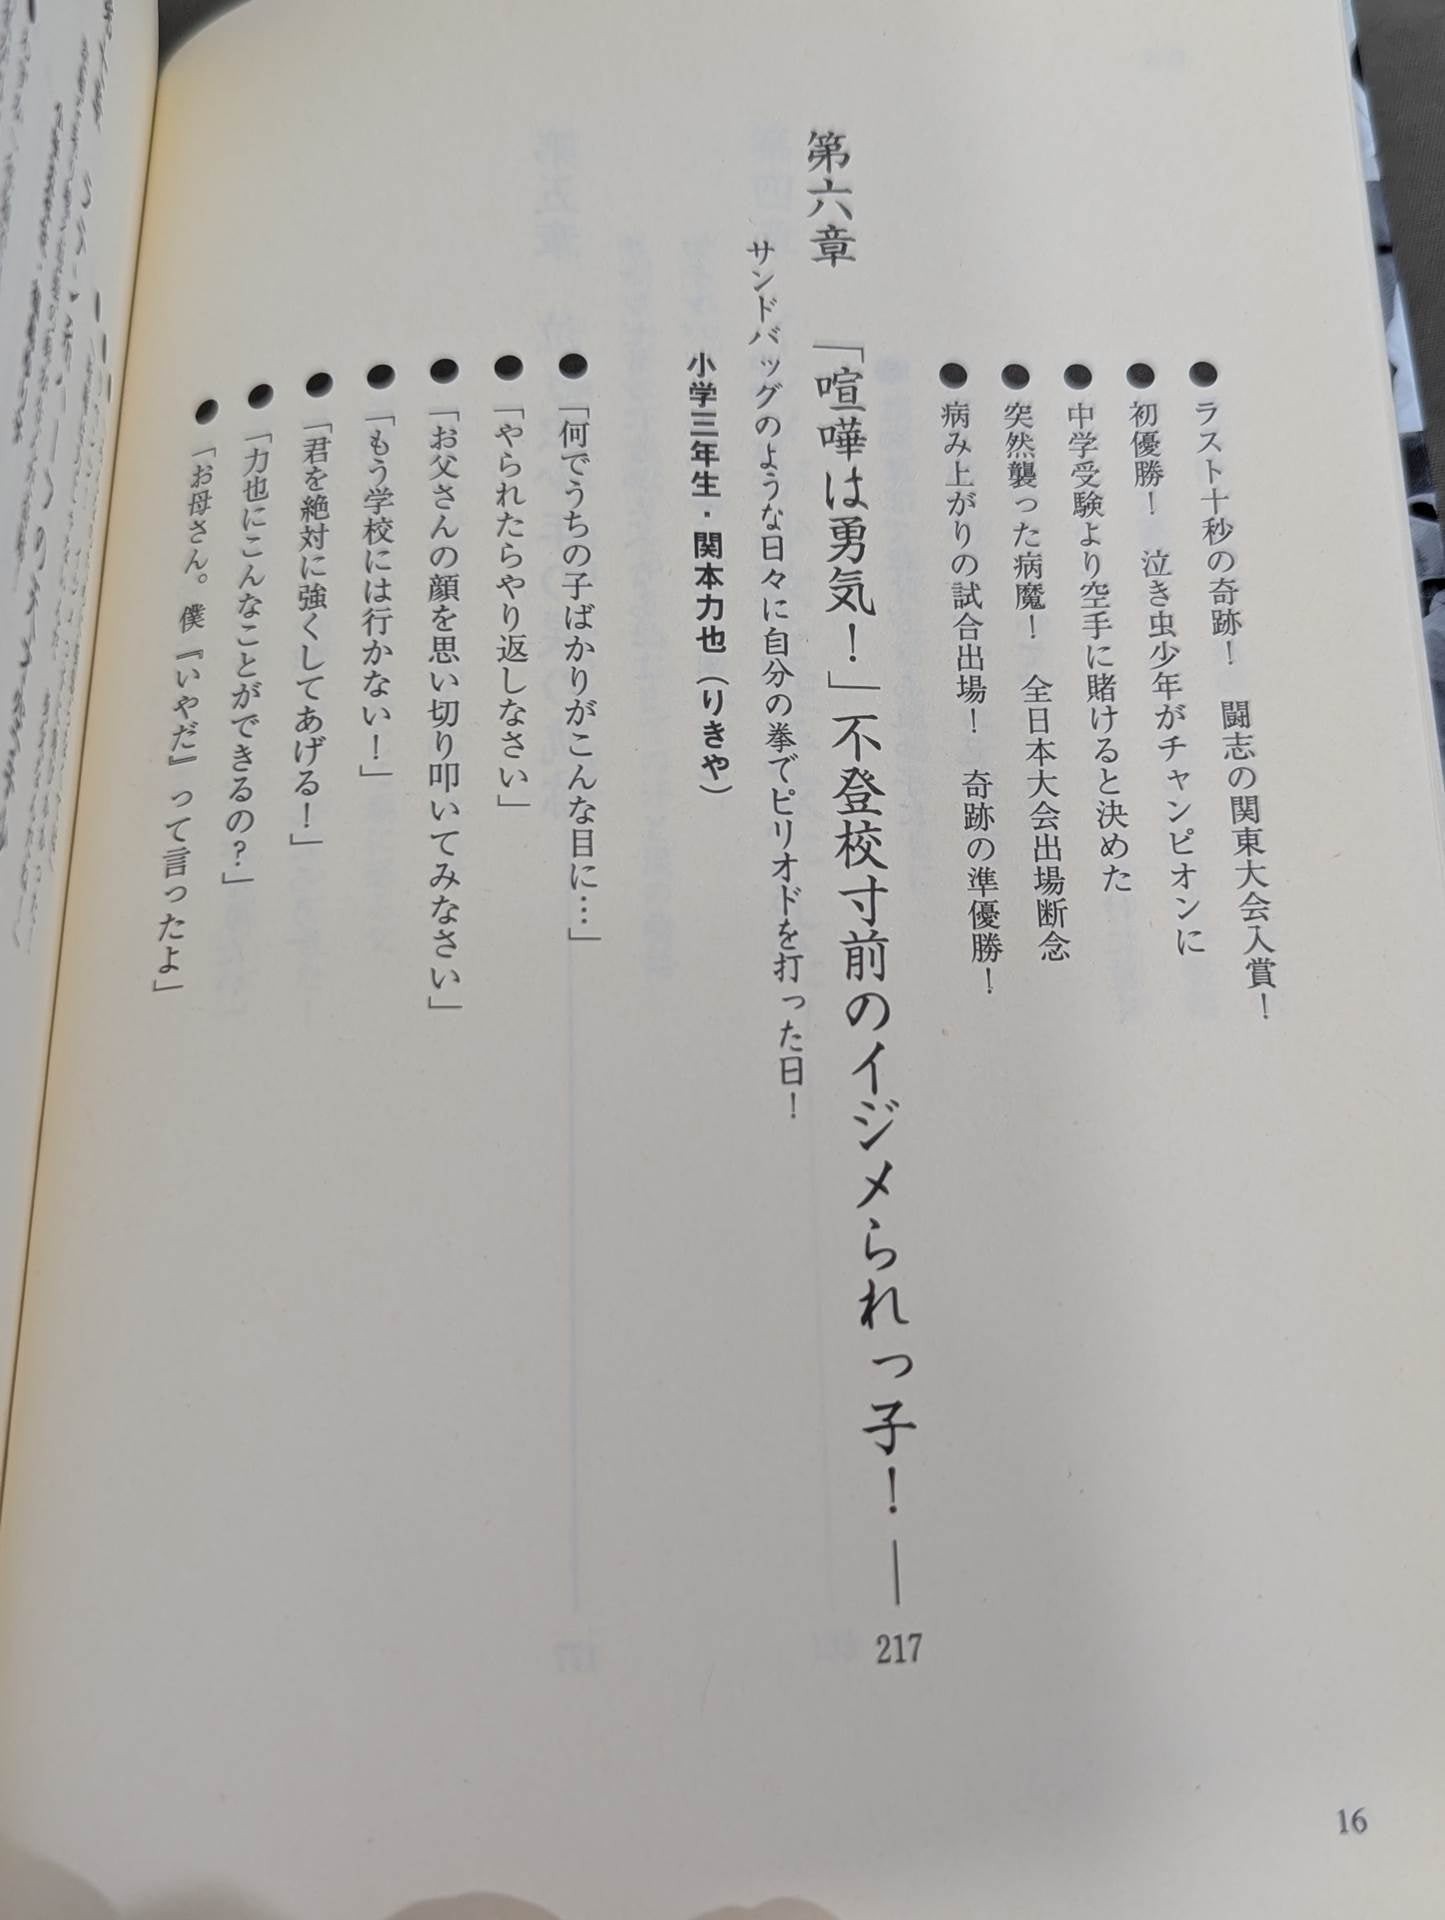 ●ラスト十秒の奇跡！　闘志の関東大会入賞！
●初優勝！　泣き虫少年がチャンピオンに
●中学受験より空手に賭けると決めた
●突然襲った病魔！　全日本大会出場断念
●病み上がりの試合出場！　奇跡の準優勝！
第六章　「喧嘩は勇気！」不登校寸前のイジメられっ子！――217
サンドバッグのような日々に自分の拳でピリオドを打った日！
小学三年生・関本力也（りきや）
●「何でうちの子ばかりがこんな目に…」
●「やられたらやり返しなさい」
●「お父さんの顔を思い切り叩いてみなさい」
●「もう学校には行かない！」
●「君を絶対に強くしてあげる！」
●「力也にこんなことができるの？」
●「お母さん。僕『いやだ』って言ったよ」
16